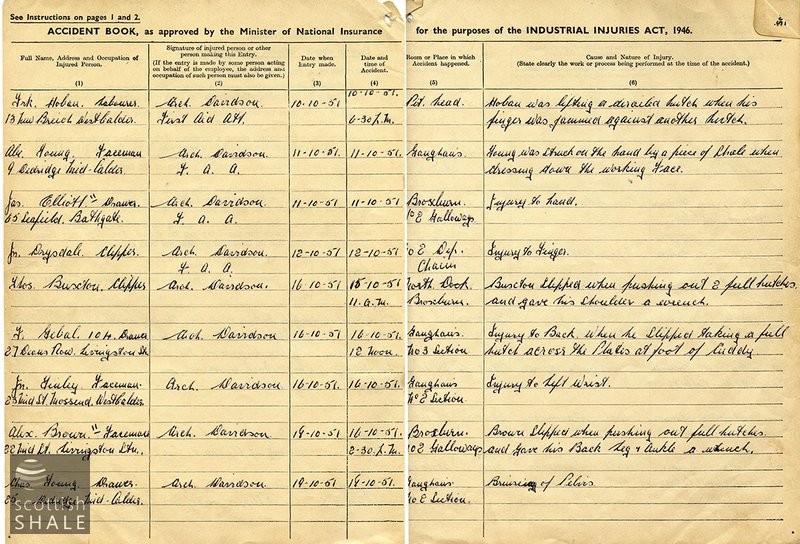 See Instructions on pages 1 and 2.
ACCIDENT BOOK, as approved by the Minister of National Insurance for the purposes of the INDUSTRIAL INJURIES ACT, 1946.
Full Name, Address and Occupation of Injured Person.
(1)
Signature of injured person or other person making this Entry.
(If the entry is made by some person acting on behalf of the employee, the address and occupation of such person must also be given.)
(2)
Date when Entry made.
(3)
Date and time of Accident.
(4)
Room or Place in which Accident happened.
(5)
Cause and Nature of Injury.
(State clearly the work or process being performed at the time of the accident.)
(6)
Frk. Hoban, Labourer. Arch. Davidson. 10-10-51 10-10-51. Pit head. Hoban was lifting a derailed hutch when his
13 New Breich West Calder. First Aid Att. 6-30 P.M. finger was jammed against another hutch.
Alx. Young, Faceman Arch. Davidson 11-10-51. 11-10-51. Young was struck on the hand by a piece of Shale when
9 Dedridge Mid-Calder. F. A. A. dressing down the working face.
Jas. Elliott " Drawer Arch. Davidson. 11-10-51 11-10-51. Broxburn. Injury to hand.
65 Seafield, Bathgate. F. A. A. No E Galloways
Jn. Drysdale, Clipper. Arch. Davidson. 12-10-51 12-10-51. No E Dep. Injury to Finger.
F. A. A. Chain
Thos. Buxton, Clipper Arch. Davidson. 16-10-51. 15-10-51 North Dook Buxton Slipped when pushing out 2 full hutches
11. a.m. Broxburn. and gave his shoulder a wrench.
Arch. Davidson 16-10-51 16-10-51. Injury to Back, when he Slipped taking a full
27 Row, Livingston Stn 12 Noon. No 3 Section hutch across the Plates at foot of Cuddy.
Jn. Faceman. Arch. Davidson 16-10-51. 16-10-51. Injury to left wrist.
Mid St Mossend, West Calder No E Section.
Alex. Brown " Faceman Arch. Davidson. 19-10-51 Broxburn. Brown Slipped when pushing out full hutches
22 Mid St. Livingston Stn., 2-30. P.M. No E Galloways and gave his Back leg & Ankle a wrench.
Chas. Young, Drawer. Arch. Davidson. 19-10-51 Bruising of Pelvis
Dedridge Mid-Calder. No E Section.
scottish
SHALE